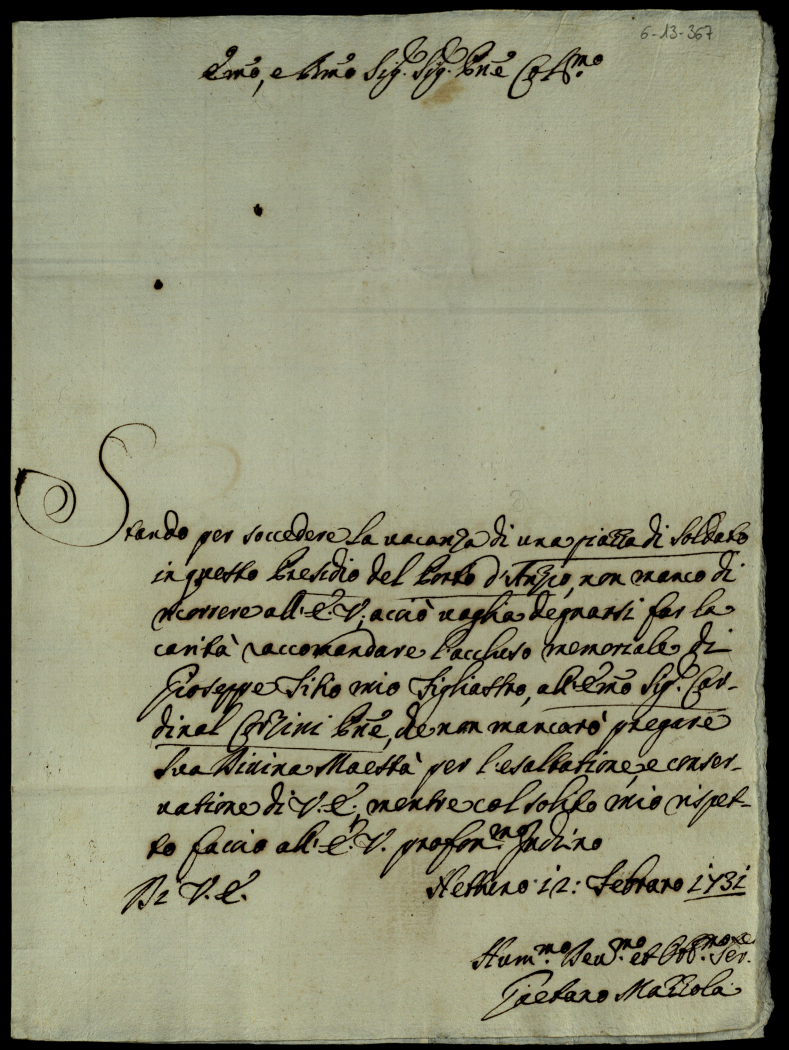 6-13-367
Emo, e Rmo Sig. Sig. Pne Col.mo
Stando per soccedere la vacanza di una piazza di soldato
in questo Presidio del Porto d'Anzio, non manco di
ricorrere all'E. V., acciò voglia degnarsi far la
carità raccomandare l'accluso memoriale di
Gioseppe mio figliastro, all'Emo Sig. Car-
dinal Corsini Pne, che non mancarò pregare
Sua Divina Maestà per l'esaltatione, e conser-
vatione di V. E., mentre col solito mio rispet-
to faccio all'E. V. profon.mo Inchino
Di V. E. Nettuno 12: Febraro 1731
Hum.mo Dev.mo et Obb.mo Ser.e
Gaetano Mazzola